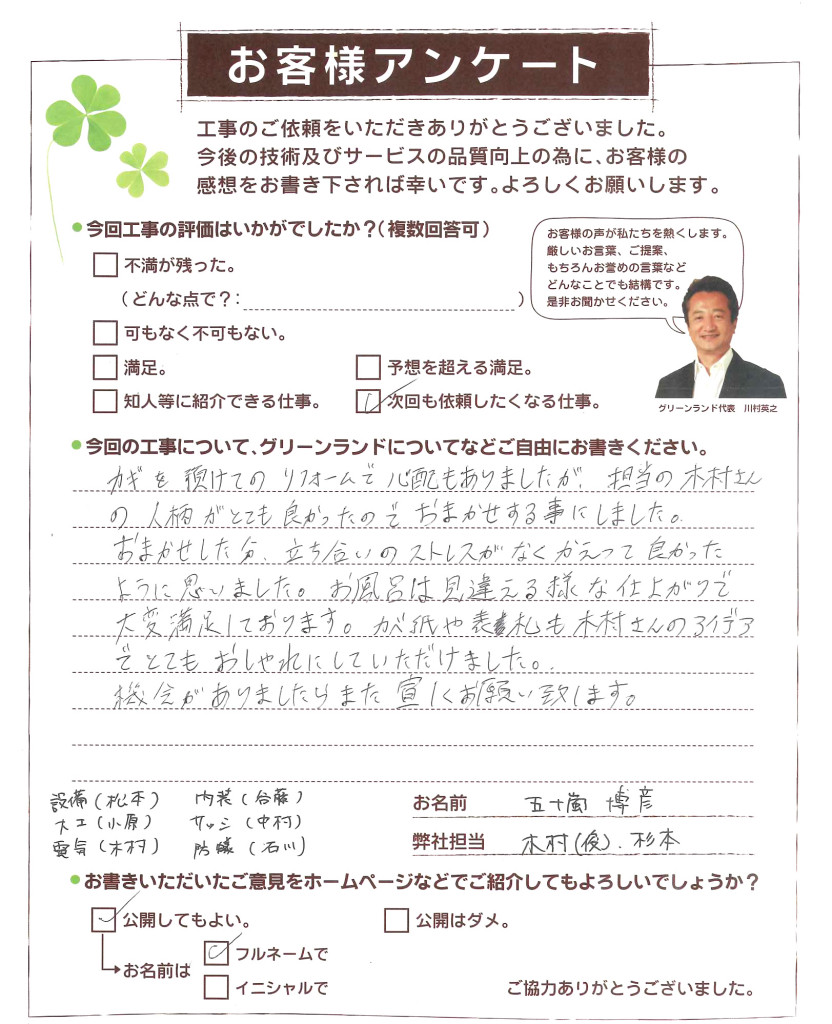 お客様アンケート
工事のご依頼をいただきありがとうございました。
今後の技術及びサービスの品質向上の為に、お客様の
感想をお書き下されば幸いです。よろしくお願いします。
●今回工事の評価はいかがでしたか？（複数回答可）
不満が残った。
（どんな点で？：　）
可もなく不可もない。
満足。
予想を超える満足。
知人等に紹介できる仕事。
次回も依頼したくなる仕事。
お客様の声が私たちを熱くします。
厳しいお言葉、ご提案、
もちろんお誉めの言葉など
どんなことでも結構です。
是非お聞かせください。
グリーンランド代表　川村英之
●今回の工事について、グリーンランドについてなどご自由にお書きください。
カギを預けてのリフォームで心配もありましたが、担当の木村さん
の人柄がとても良かったので おまかせする事にしました。
おまかせした分、立ち合いのストレスがなくかえって良かった
ように思いました。お風呂は見違える様な仕上がりで
大変満足しております。かべ紙や表札も木村さんのアイデア
でとてもおしゃれにしていただけました。
機会がありましたらまた宜しくお願い致します。
設備（松本）　内装（合藤）
大工（小原）　サッシ（中村）
電気（木村）　防蟻（石川）
お名前　五十嵐 博彦
弊社担当　木村(俊)．杉本
●お書きいただいたご意見をホームページなどでご紹介してもよろしいでしょうか？
公開してもよい。
公開はダメ。
お名前は
フルネームで
イニシャルで
ご協力ありがとうございました。